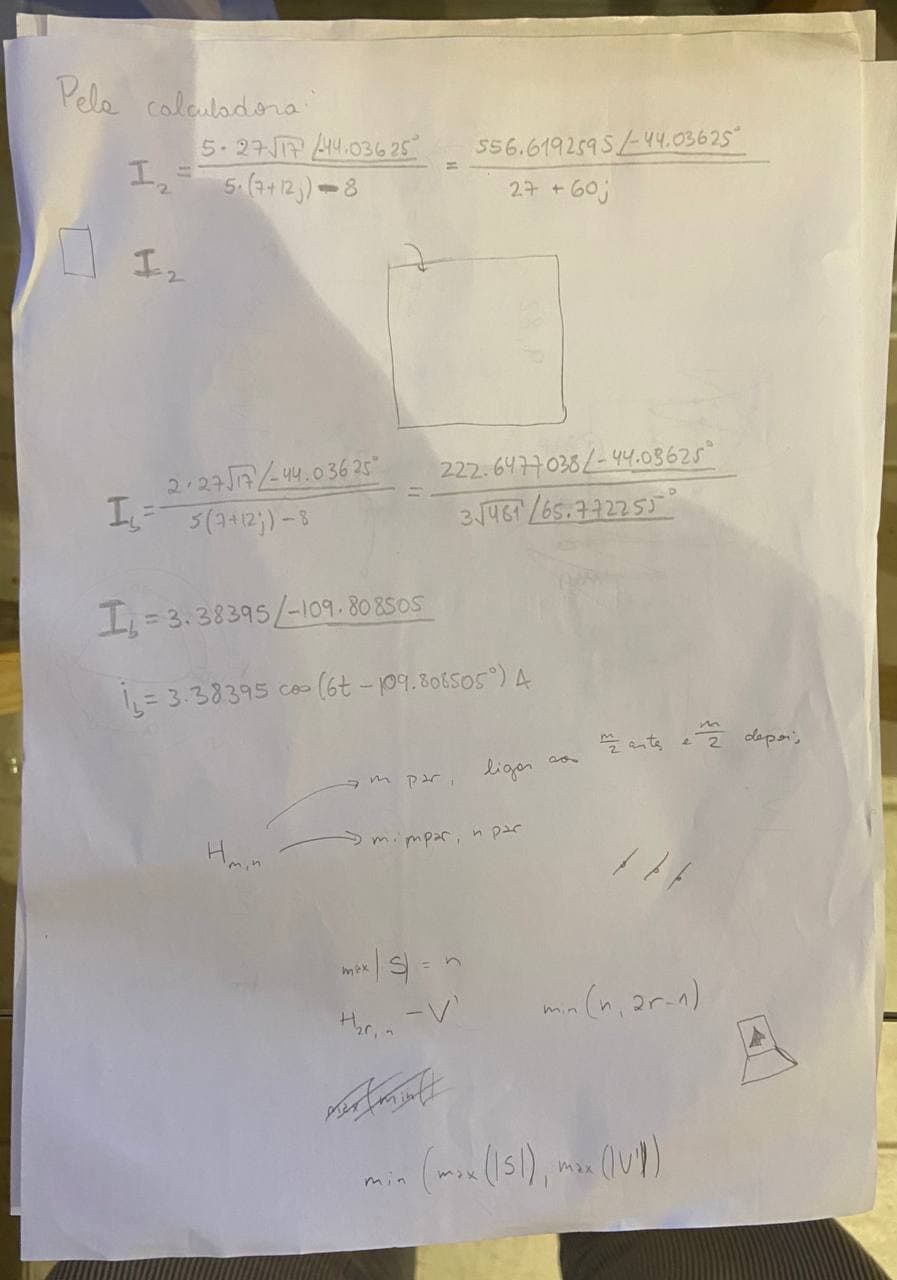 Pela calculadora:
I₂ = 5·27√17 /-44.03625° / 5·(7+12j)-8 = 556.6192595 /-44.03625° / 27+60j
I₂
I_b = 2·27√17 /-44.03625° / 5(7+12j)-8 = 222.6477038 /-44.03625° / 3√481 /65.772255°
I_b = 3.38395 /-109.808505
i_b = 3.38395 cos(6t - 109.808505°) A
m par, ligar ao m/2 antes e m/2 depois
H_{m,n}
m impar, n par
max|S| = n
H_{2r,n} - V'
min(n, 2r-1)
min(max(|S|), max(|V'|))